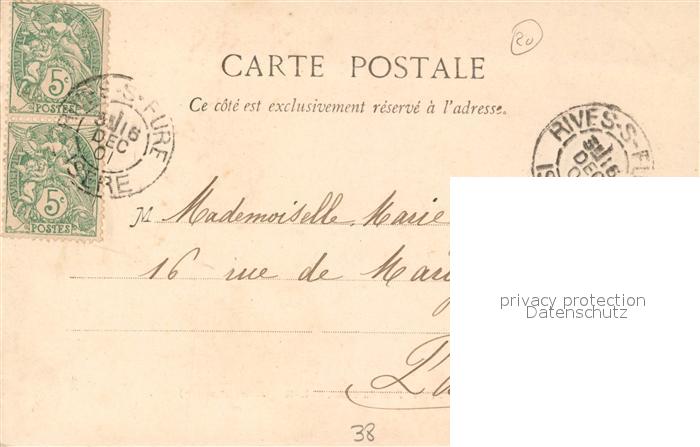 20
CARTE POSTALE
Ce côté est exclusivement réservé à l'adresse.
5c
POSTES
5c
POSTES
RIVES-S-FURE
16
DEC
01
ISÈRE
RIVES-S-FU
16
DEC
M Mademoiselle Marie
16 rue de
privacy protection
Datenschutz
38